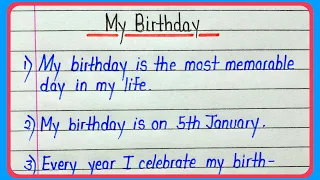 My Birthday
1) My birthday is the most memorable
day in my life.
2) My birthday is on 5th January.
3) Every year I celebrate my birth-